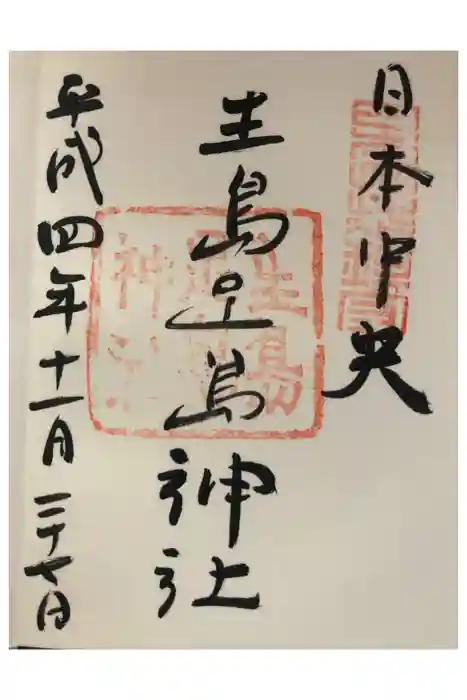 日本中央
生島足島神社
平成四年十一月二十七日
生島
足島
神社